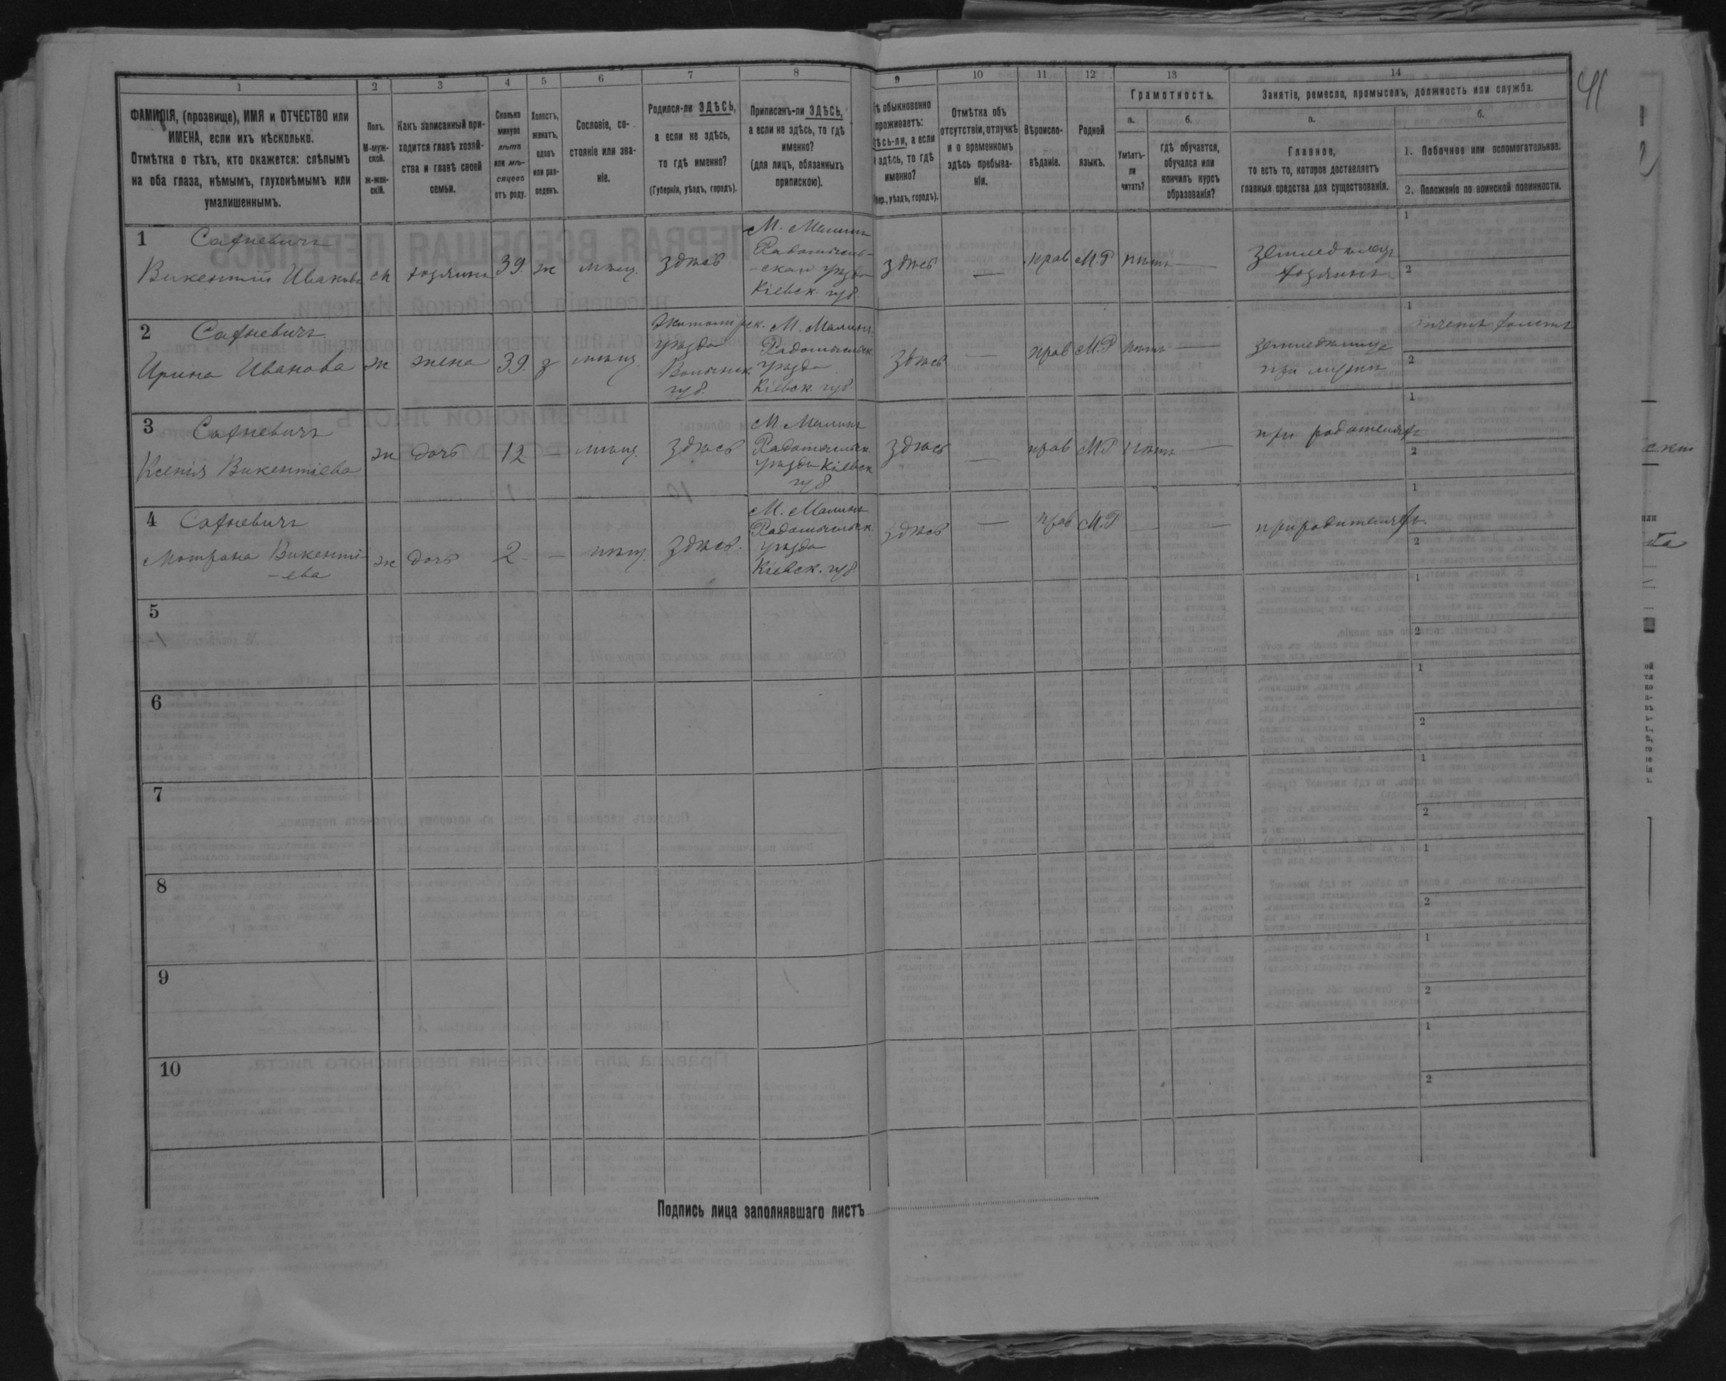 1 2 3 4 5 6 7 8 9 10 11 12 13 14
41
ФАМИЛІЯ, (прозвище), ИМЯ и ОТЧЕСТВО или
ИМЕНА, если ихъ нѣсколько.
Отмѣтка о тѣхъ, кто окажется: слѣпымъ
на оба глаза, нѣмымъ, глухонѣмымъ или
умалишеннымъ.
Полъ.
М-муж-
ской.
ж-жен-
скій.
Какъ записанный при-
ходится главѣ хозяй-
ства и главѣ своей
семьи.
Сколько
минуло
лѣтъ
или мѣ-
сяцевъ
отъ роду.
Холостъ,
женатъ,
вдовъ
или раз-
веденъ.
Сословіе, со-
стояніе или зва-
ніе.
Родился-ли ЗДѢСЬ,
а если не здѣсь,
то гдѣ именно?
(Губернія, уѣздъ, городъ).
Приписанъ-ли ЗДѢСЬ,
а если не здѣсь, то гдѣ
именно?
(для лицъ, обязанныхъ
припискою).
обыкновенно
проживаетъ:
здѣсь-ли, а если
здѣсь, то гдѣ
именно?
уѣздъ, городъ).
Отмѣтка объ
отсутствіи, отлучкѣ
и о временномъ
здѣсь пребыва-
ніи.
Вѣроиспо-
вѣданіе.
Родной
языкъ.
Грамотность.
а.
Умѣетъ-
ли
читать?
б.
гдѣ обучается,
обучался или
кончилъ курсъ
образованія?
Занятіе, ремесло, промыселъ, должность или служба.
а.
Главное,
то есть то, которое доставляетъ
главныя средства для существованія.
б.
1. Побочное или вспомогательное.
2. Положеніе по воинской повинности.
1 Сахневичъ
Викентій Ивановъ м хозяинъ 39 ж мѣщ. здѣсь
М. Малинъ
Радомысль-
скаго уѣзда
Кіевск. губ.
здѣсь — прав М.Р нѣтъ —
земледѣлецъ
хозяинъ
1
2
2 Сахневичъ
Ирина Иванова ж жена 39 з мѣщ.
Житомірск.
уѣзда
Волынск
губ.
М. Малинъ
Радомысльск.
уѣзда
Кіевск. губ.
здѣсь — прав М.Р нѣтъ —
при мужѣ
1
2
3 Сахневичъ
Ксенія Викентіева ж дочь 12 — мѣщ. здѣсь
М. Малинъ
Радомысльск.
уѣзда Кіевск
губ
здѣсь — прав М.Р нѣтъ —
при родителяхъ
1
2
4 Сахневичъ
Мотрона Викенті-
-ева ж дочь 2 — мѣщ. здѣсь.
М. Малинъ
Радомысльск.
уѣзда
Кіевск. губ
здѣсь — прав М.Р — —
при родителяхъ
1
2
5
1
2
6
1
2
7
1
2
8
1
2
9
1
2
10
1
2
Подпись лица заполнявшаго листъ